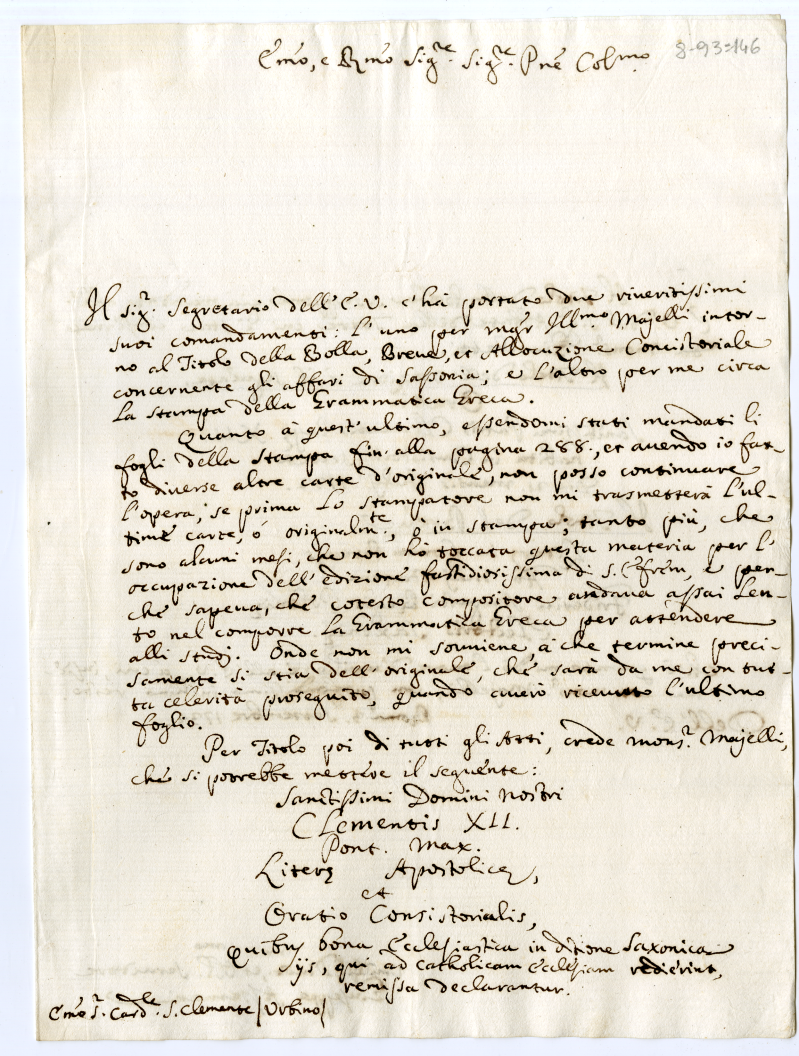 8-93=146
Emo, e Rmo Sig.re Sig.re Pne Colmo.
Il sig.r Segretario dell'E.V. c'hà portato due riveritissimi
suoi comandamenti: l'uno per mgr Ill.mo Majelli intor-
no al Titolo della Bolla, Breve, et Allocuzione Concistoriale
concernente gli affari di Sassonia; e l'altro per me circa
la stampa della Grammatica Greca.
Quanto à quest'ultimo, essendomi stati mandati li
fogli della stampa fin'alla pagina 288., et avendo io fat-
to diverse altre carte d'originale, non posso continuare
l'opera, se prima lo stampatore non mi trasmetterà l'ul-
time carte, ò originalm.te, ò in stampa; tanto più, che
sono alcuni mesi, che non hò toccata questa materia per l'
occupazione dell'edizione fastidiosissima di S. Efrem, e per-
che sapeva, che cotesto compositore andava assai len-
to nel comporre la Grammatica Greca per attendere
alli studj. Onde non mi souviene, à che termine preci-
samente si stia dell'originale, che sarà da me con tut-
ta celerità proseguito, quando averò ricevuto l'ultimo
foglio.
Per Titolo poi di tutti gli Atti, crede mons.r Majelli,
che si potrebbe mettere il seguente:
Sanctissimi Domini Nostri
Clementis XII.
Pont. Max.
Literę Apostolicę,
et
Oratio Consistorialis,
Quibus bona Ecclesiastica in ditione Saxonica
ijs, qui ad Catholicam Ecclesiam redierint,
remissa declarantur.
Emo S.r Card.le S. Clemente [Urbino]